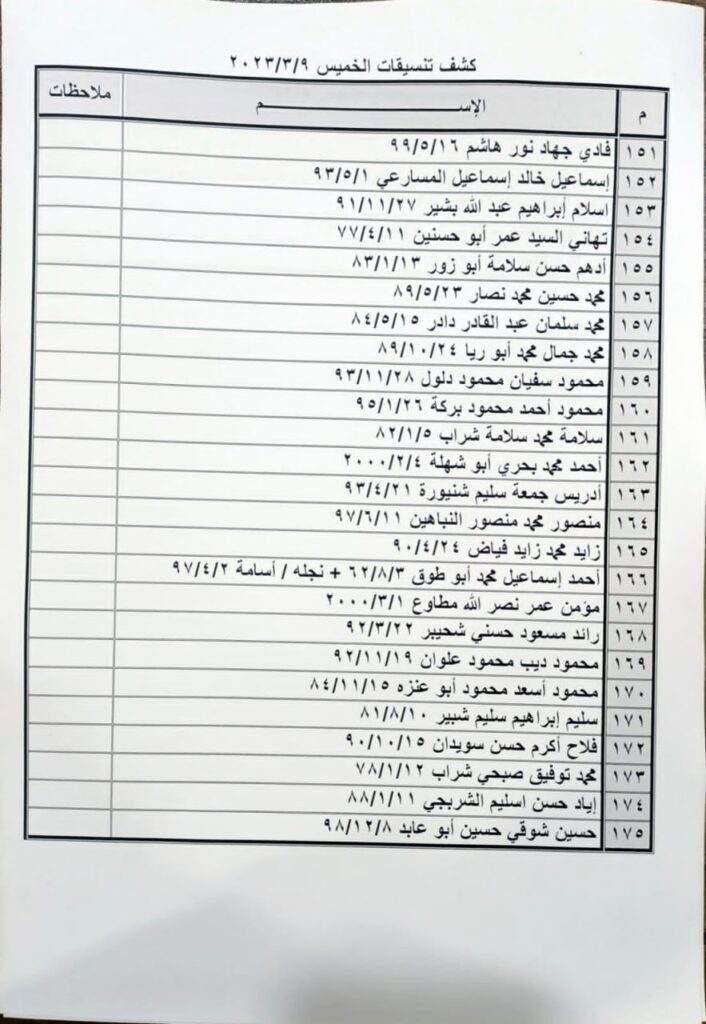 كشف تنسيقات الخميس ٢٠٢٣/٣/٩
م الإســـــــــــــم ملاحظات
١٥١ فادي جهاد نور هاشم ٩٩/٥/١٦
١٥٢ إسماعيل خالد إسماعيل المسارعي ٩٣/٥/١
١٥٣ اسلام إبراهيم عبد الله بشير ٩١/١١/٢٧
١٥٤ تهاني السيد عمر أبو حسنين ٧٧/٤/١١
١٥٥ أدهم حسن سلامة أبو زور ٨٣/١/١٣
١٥٦ محمد حسين محمد نصار ٨٩/٥/٢٣
١٥٧ محمد سلمان عبد القادر دادر ٨٤/٥/١٥
١٥٨ محمد جمال محمد أبو ريا ٨٩/١٠/٢٤
١٥٩ محمود سفيان محمود دلول ٩٣/١١/٢٨
١٦٠ محمود أحمد محمود بركة ٩٥/١/٢٦
١٦١ سلامة محمد سلامة شراب ٨٢/١/٥
١٦٢ أحمد محمد بحري أبو شهلة ٢٠٠٠/٢/٤
١٦٣ أدريس جمعة سليم شنيورة ٩٣/٤/٢١
١٦٤ منصور محمد منصور النباهين ٩٧/٦/١١
١٦٥ زايد محمد زايد فياض ٩٠/٤/٢٤
١٦٦ أحمد إسماعيل محمد أبو طوق ٦٢/٨/٣ + نجله / أسامة ٩٧/٤/٢
١٦٧ مؤمن عمر نصر الله مطاوع ٢٠٠٠/٣/١
١٦٨ رائد مسعود حسني شحيبر ٩٢/٣/٢٢
١٦٩ محمود ديب محمود علوان ٩٢/١١/١٩
١٧٠ محمود أسعد محمود أبو عنزه ٨٤/١١/١٥
١٧١ سليم إبراهيم سليم شبير ٨١/٨/١٠
١٧٢ فلاح أكرم حسن سويدان ٩٠/١٠/١٥
١٧٣ محمد توفيق صبحي شراب ٧٨/١/١٢
١٧٤ إياد حسن اسليم الشربجي ٨٨/١/١١
١٧٥ حسين شوقي حسين أبو عابد ٩٨/١٢/٨